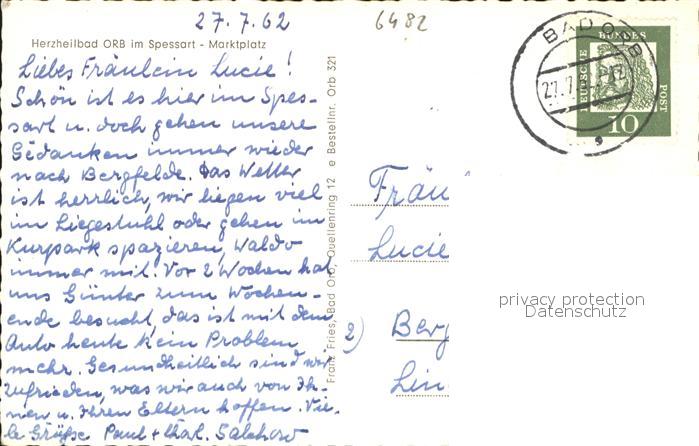 27.7.62
6482
Herzheilbad ORB im Spessart - Marktplatz
Liebes Fräulein Lucie!
Schön ist es hier im Spes-
sart u. doch gehen unsere
Gedanken immer wieder
nach Bergfelde. Das Wetter
ist herrlich, wir liegen viel
im Liegestuhl oder gehen im
Kurpark spazieren, Waldo
immer mit! Vor 2 Wochen hat
uns Günter zum Wochen-
ende besucht, das ist mit dem
Auto heute kein Problem
mehr. Gesundheitlich sind wir
zufrieden, was wir auch von Ih-
nen u. Ihren Eltern hoffen. Vie-
le Grüße Paul + Charl. Salchow
Franz Fries, Bad Orb, Quellenring 12 e Bestellnr. Orb 321
BAD ORB
27.7.
DEUTSCHE
BUNDES
POST
10
Fräu
Lucie
2) Berg
Lin
privacy protection
Datenschutz